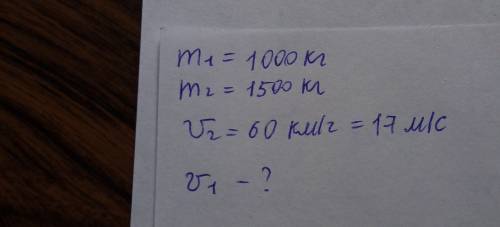 m₁ = 1000 кг
m₂ = 1500 кг
v₂ = 60 км/г = 17 м/с
v₁ - ?